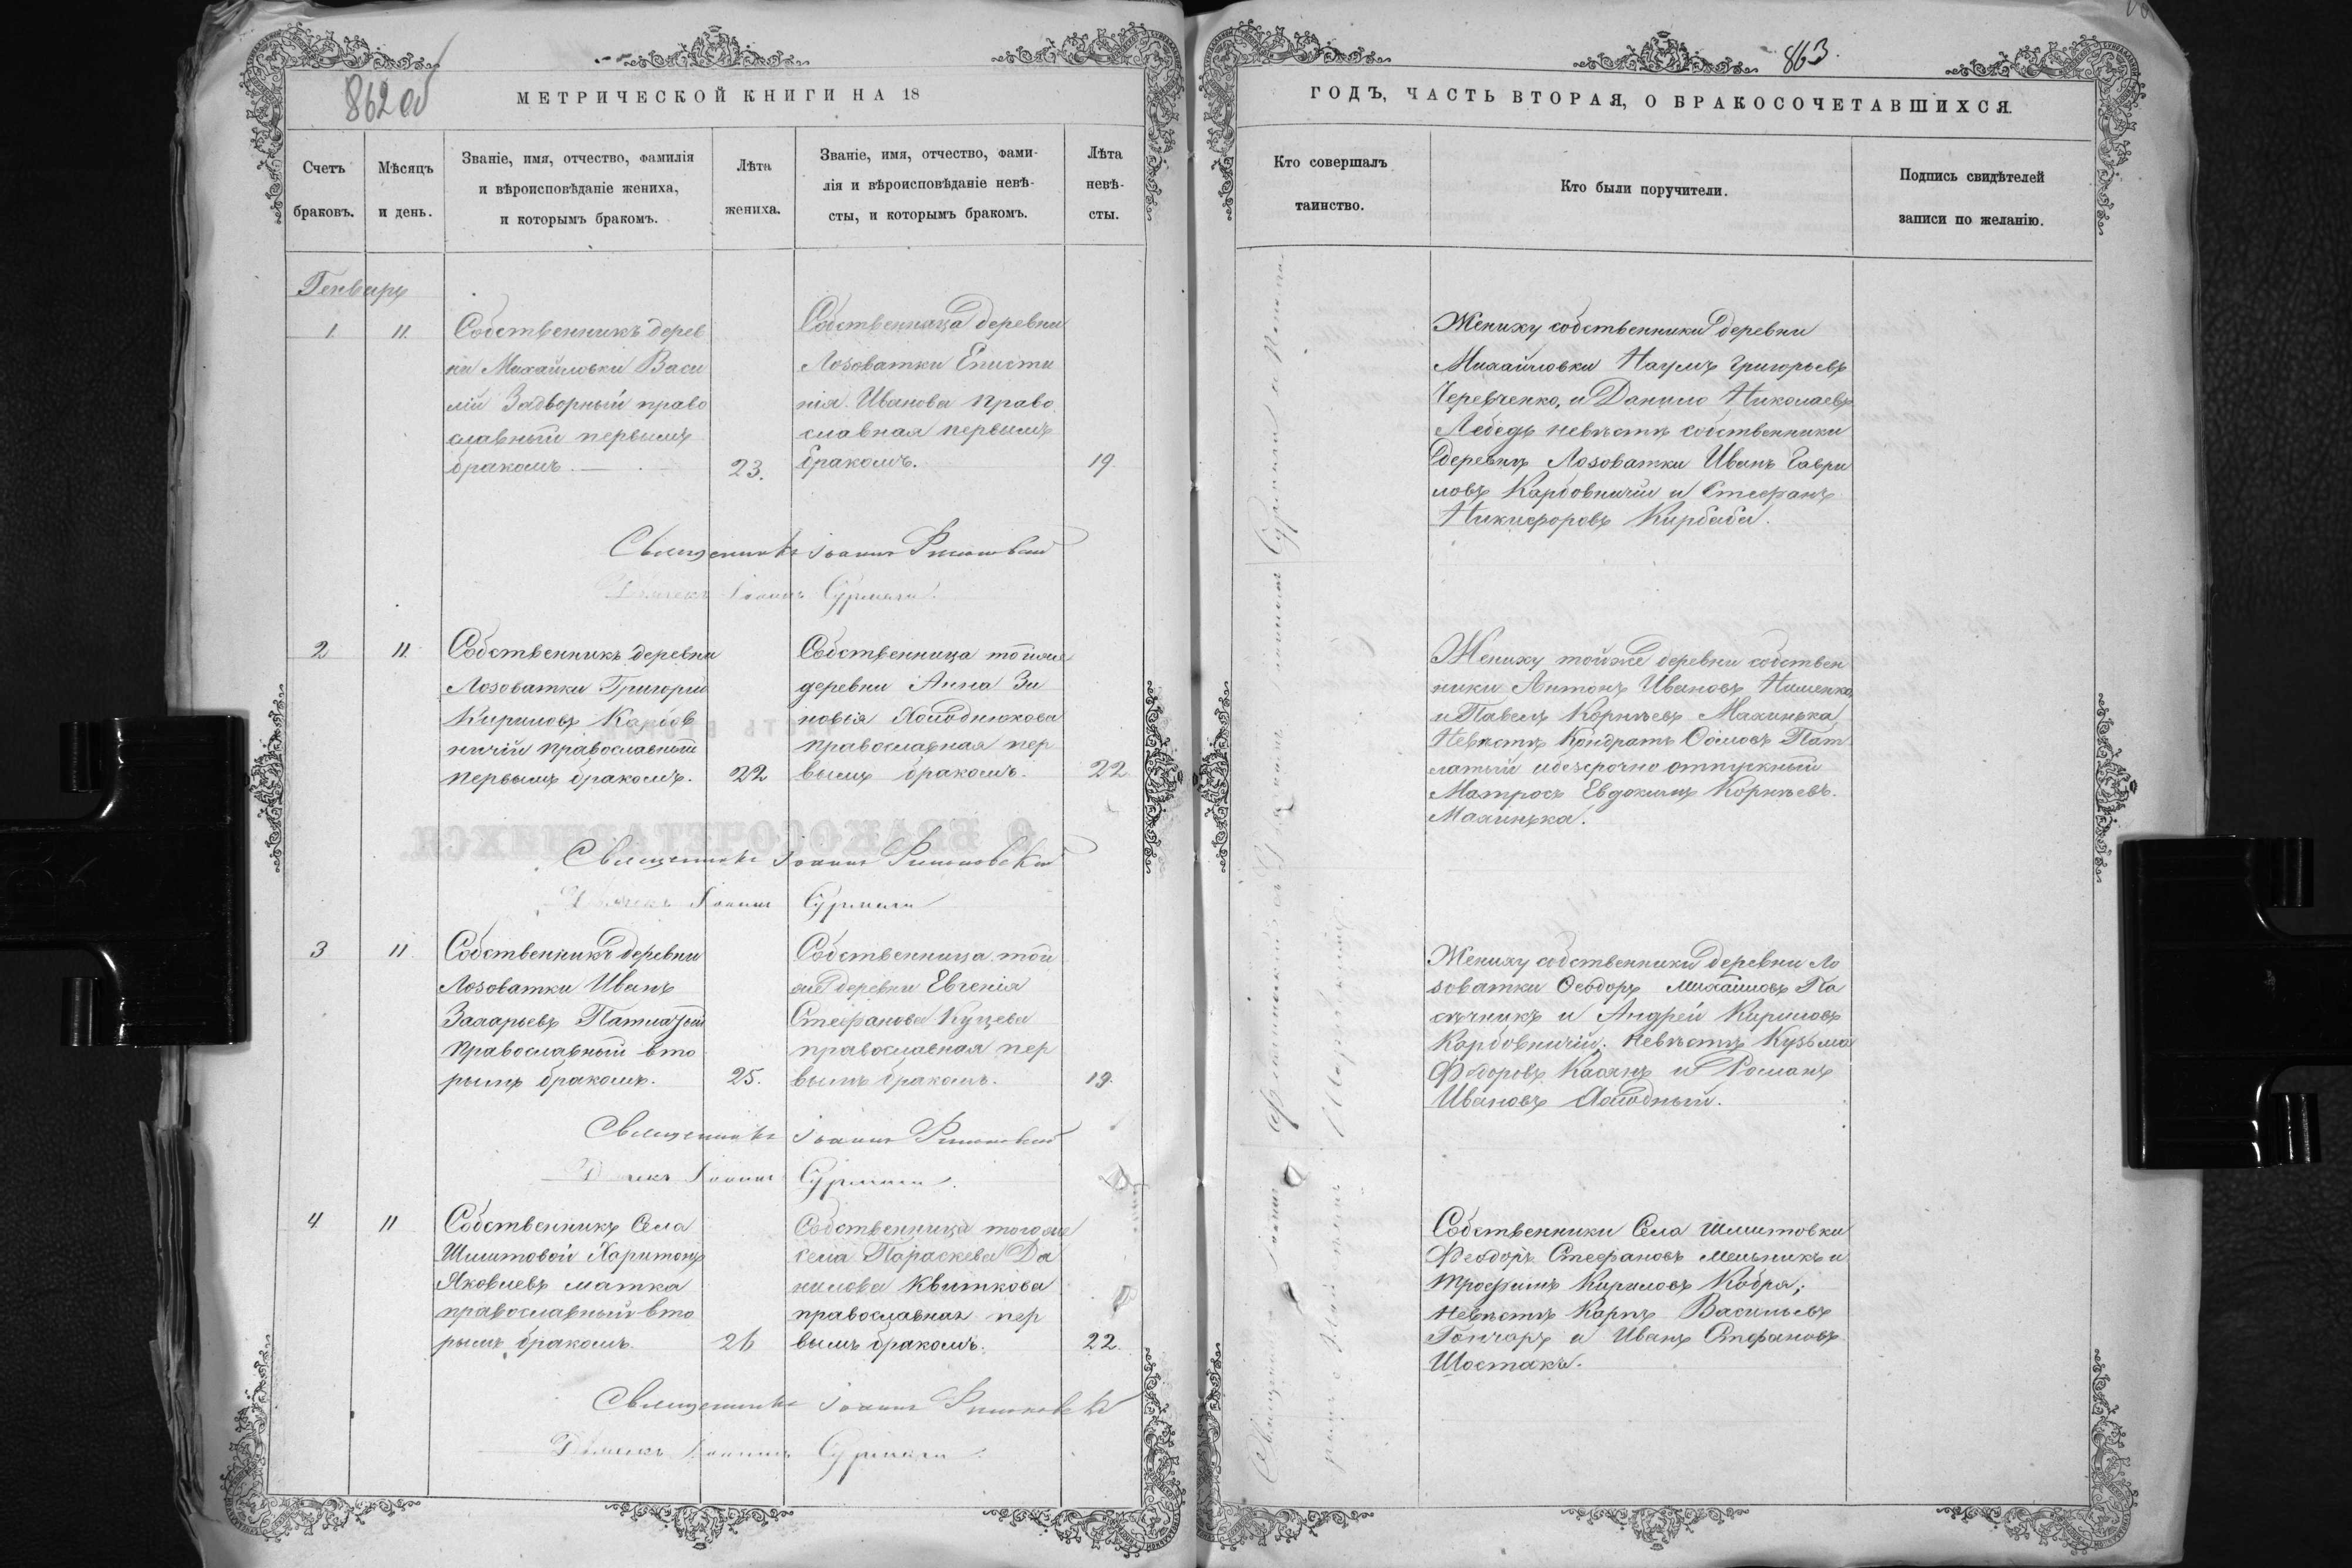 862 об
МЕТРИЧЕСКОЙ КНИГИ НА 18
Счетъ браковъ.
Мѣсяцъ и день.
Званіе, имя, отчество, фамилія
и вѣроисповѣданіе жениха,
и которымъ бракомъ.
Лѣта
жениха.
Званіе, имя, отчество, фами-
лія и вѣроисповѣданіе невѣ-
сты, и которымъ бракомъ.
Лѣта
невѣ-
сты.
Генварь
1. 11.
Собственникъ дерев
ни Михайловки Васи
лій Задворный право
славный первымъ
бракомъ. 23.
Собственница деревни
Лозоватки Еписти
нія Иванова право
славная первымъ
бракомъ. 19.
Священникъ Іоаннъ
Дьячекъ Іоаннъ Сурмачи
2 11.
Собственникъ деревни
Лозоватки Григорій
Кириловъ Карбов
ничій православный
первымъ бракомъ. 22
Собственница тойже
деревни Анна Зи
новія Холоднюкова
православная пер
вымъ бракомъ. 22
Священникъ Іоаннъ
Дьячекъ Іоаннъ Сурмачи
3 11.
Собственникъ деревни
Лозоватки Иванъ
Захарьевъ Патлатый
православный вто
рымъ бракомъ. 25.
Собственница той
же деревни Евгенія
Стефанова Куцева
православная пер
вымъ бракомъ. 19.
Священникъ Іоаннъ
Дьячекъ Іоаннъ Сурмачи
4 11
Собственникъ Села
Шмитовой Харитонъ
Яковлевъ матка
православный вто
рымъ бракомъ. 26
Собственница тогоже
села Параскева Да
нилова Квиткова
православная пер
вымъ бракомъ. 22.
Священникъ Іоаннъ
Дьячекъ Іоаннъ Сурмачи
863.
ГОДЪ, ЧАСТЬ ВТОРАЯ, О БРАКОСОЧЕТАВШИХСЯ.
Кто совершалъ
таинство.
Кто были поручители.
Подпись свидѣтелей
записи по желанію.
Жениху собственники деревни
Михайловки Наумъ Григорьевъ
Черевченко, и Данило Николаевъ
Лебедь невѣстѣ собственники
деревни Лозоватки Иванъ Гаври
ловъ Карбовничій и Стефанъ
Никифоровъ Кирбаба.
Жениху тойже деревни собствен
ники Антонъ Ивановъ
и Павелъ Корнѣевъ Махинька
Невѣстѣ Кондратъ Патлатый
Матросъ Евдокимъ Корнѣевъ.
Махинька.
Жениху собственники деревни Ло
зоватки Ѳеодоръ Михайловъ Па
сѣчникъ и Андрей Кириловъ
Карбовничій; Невѣстѣ Кузьма
Федоровъ Касянъ и Романъ
Ивановъ Холодный.
Собственники Села Шмитовки
Феодоръ Стефановъ Мельникъ и
Трофимъ Кириловъ Кобря;
Невѣстѣ Карпъ Васильевъ
Гончаръ и Иванъ Стефановъ
Шостакъ.